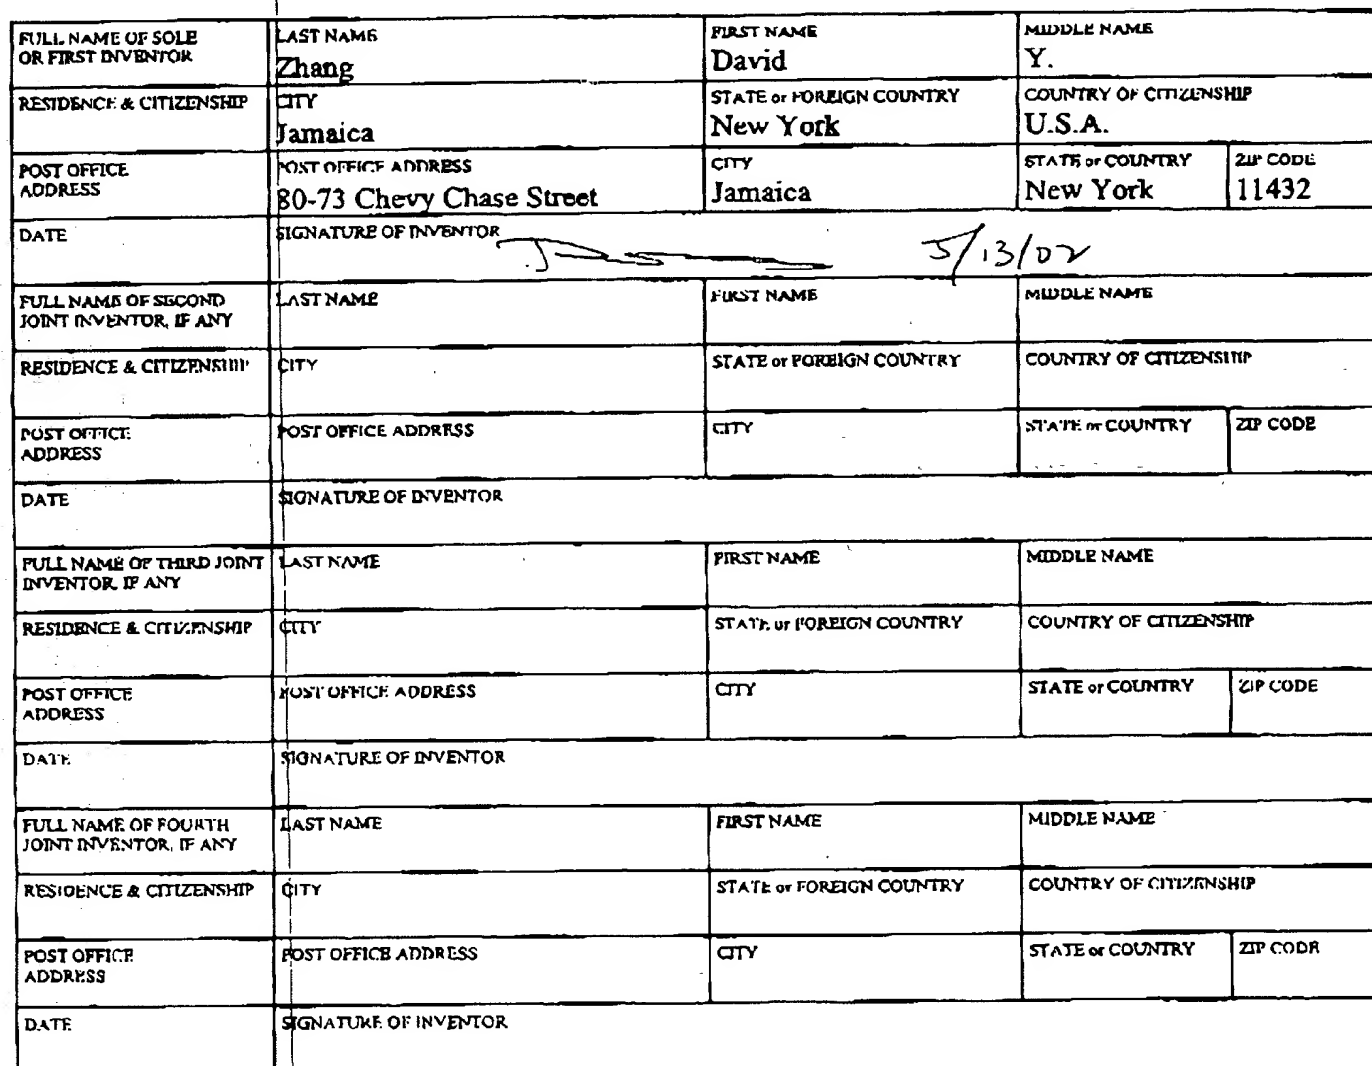 FULL NAME OF SOLE OR FIRST INVENTOR
LAST NAME
Zhang
FIRST NAME
David
MIDDLE NAME
Y.
RESIDENCE & CITIZENSHIP
CITY
Jamaica
STATE or FOREIGN COUNTRY
New York
COUNTRY OF CITIZENSHIP
U.S.A.
POST OFFICE ADDRESS
POST OFFICE ADDRESS
80-73 Chevy Chase Street
CITY
Jamaica
STATE or COUNTRY
New York
ZIP CODE
11432
DATE
SIGNATURE OF INVENTOR
5/13/02
FULL NAME OF SECOND JOINT INVENTOR, IF ANY
LAST NAME
FIRST NAME
MIDDLE NAME
RESIDENCE & CITIZENSHIP
CITY
STATE or FOREIGN COUNTRY
COUNTRY OF CITIZENSHIP
POST OFFICE ADDRESS
POST OFFICE ADDRESS
CITY
STATE or COUNTRY
ZIP CODE
DATE
SIGNATURE OF INVENTOR
FULL NAME OF THIRD JOINT INVENTOR, IF ANY
LAST NAME
FIRST NAME
MIDDLE NAME
RESIDENCE & CITIZENSHIP
CITY
STATE or FOREIGN COUNTRY
COUNTRY OF CITIZENSHIP
POST OFFICE ADDRESS
POST OFFICE ADDRESS
CITY
STATE or COUNTRY
ZIP CODE
DATE
SIGNATURE OF INVENTOR
FULL NAME OF FOURTH JOINT INVENTOR, IF ANY
LAST NAME
FIRST NAME
MIDDLE NAME
RESIDENCE & CITIZENSHIP
CITY
STATE or FOREIGN COUNTRY
COUNTRY OF CITIZENSHIP
POST OFFICE ADDRESS
POST OFFICE ADDRESS
CITY
STATE or COUNTRY
ZIP CODE
DATE
SIGNATURE OF INVENTOR